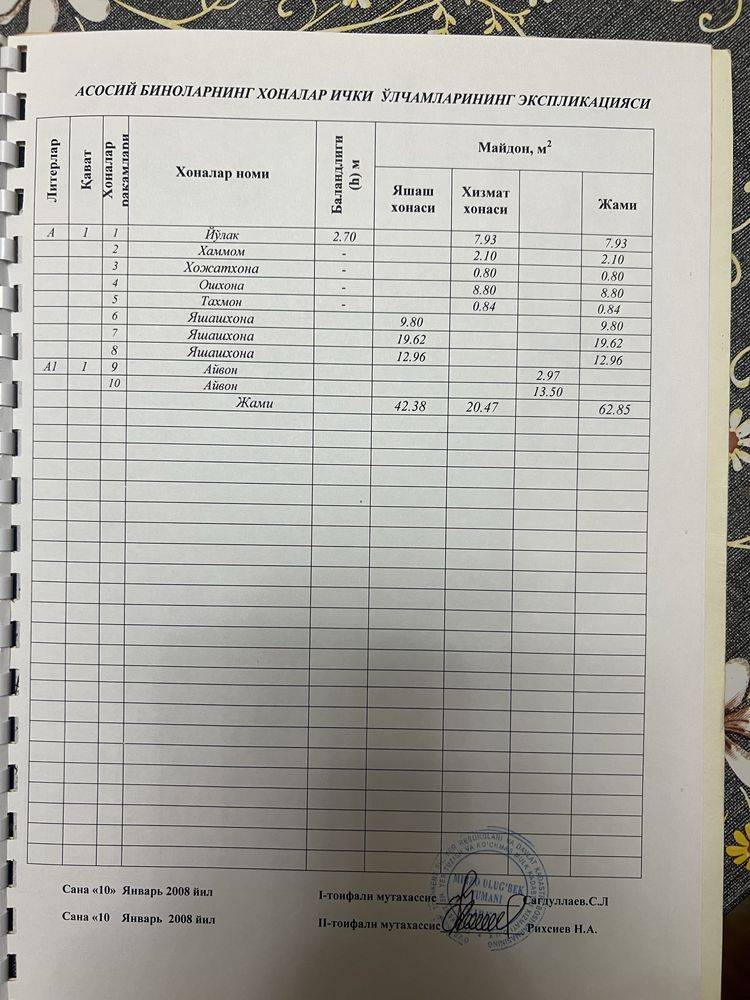 АСОСИЙ БИНОЛАРНИНГ ХОНАЛАР ИЧКИ ЎЛЧАМЛАРИНИНГ ЭКСПЛИКАЦИЯСИ
Литерлар Қават Хоналар рақамлари Хоналар номи Баландлиги (h) м Майдон, м²
Яшаш хонаси Хизмат хонаси Жами
А 1 1 Йўлак 2.70 7.93 7.93
2 Хаммом - 2.10 2.10
3 Хожатхона - 0.80 0.80
4 Ошхона - 8.80 8.80
5 Тахмон - 0.84 0.84
6 Яшашхона 9.80 9.80
7 Яшашхона 19.62 19.62
8 Яшашхона 12.96 12.96
А1 1 9 Айвон 2.97
10 Айвон 13.50
Жами 42.38 20.47 62.85
Сана «10» Январь 2008 йил I-тоифали мутахассис Сагдуллаев.С.Л
Сана «10 Январь 2008 йил II-тоифали мутахассис Рихсиев Н.А.
ULUG'BEK
TUMANI